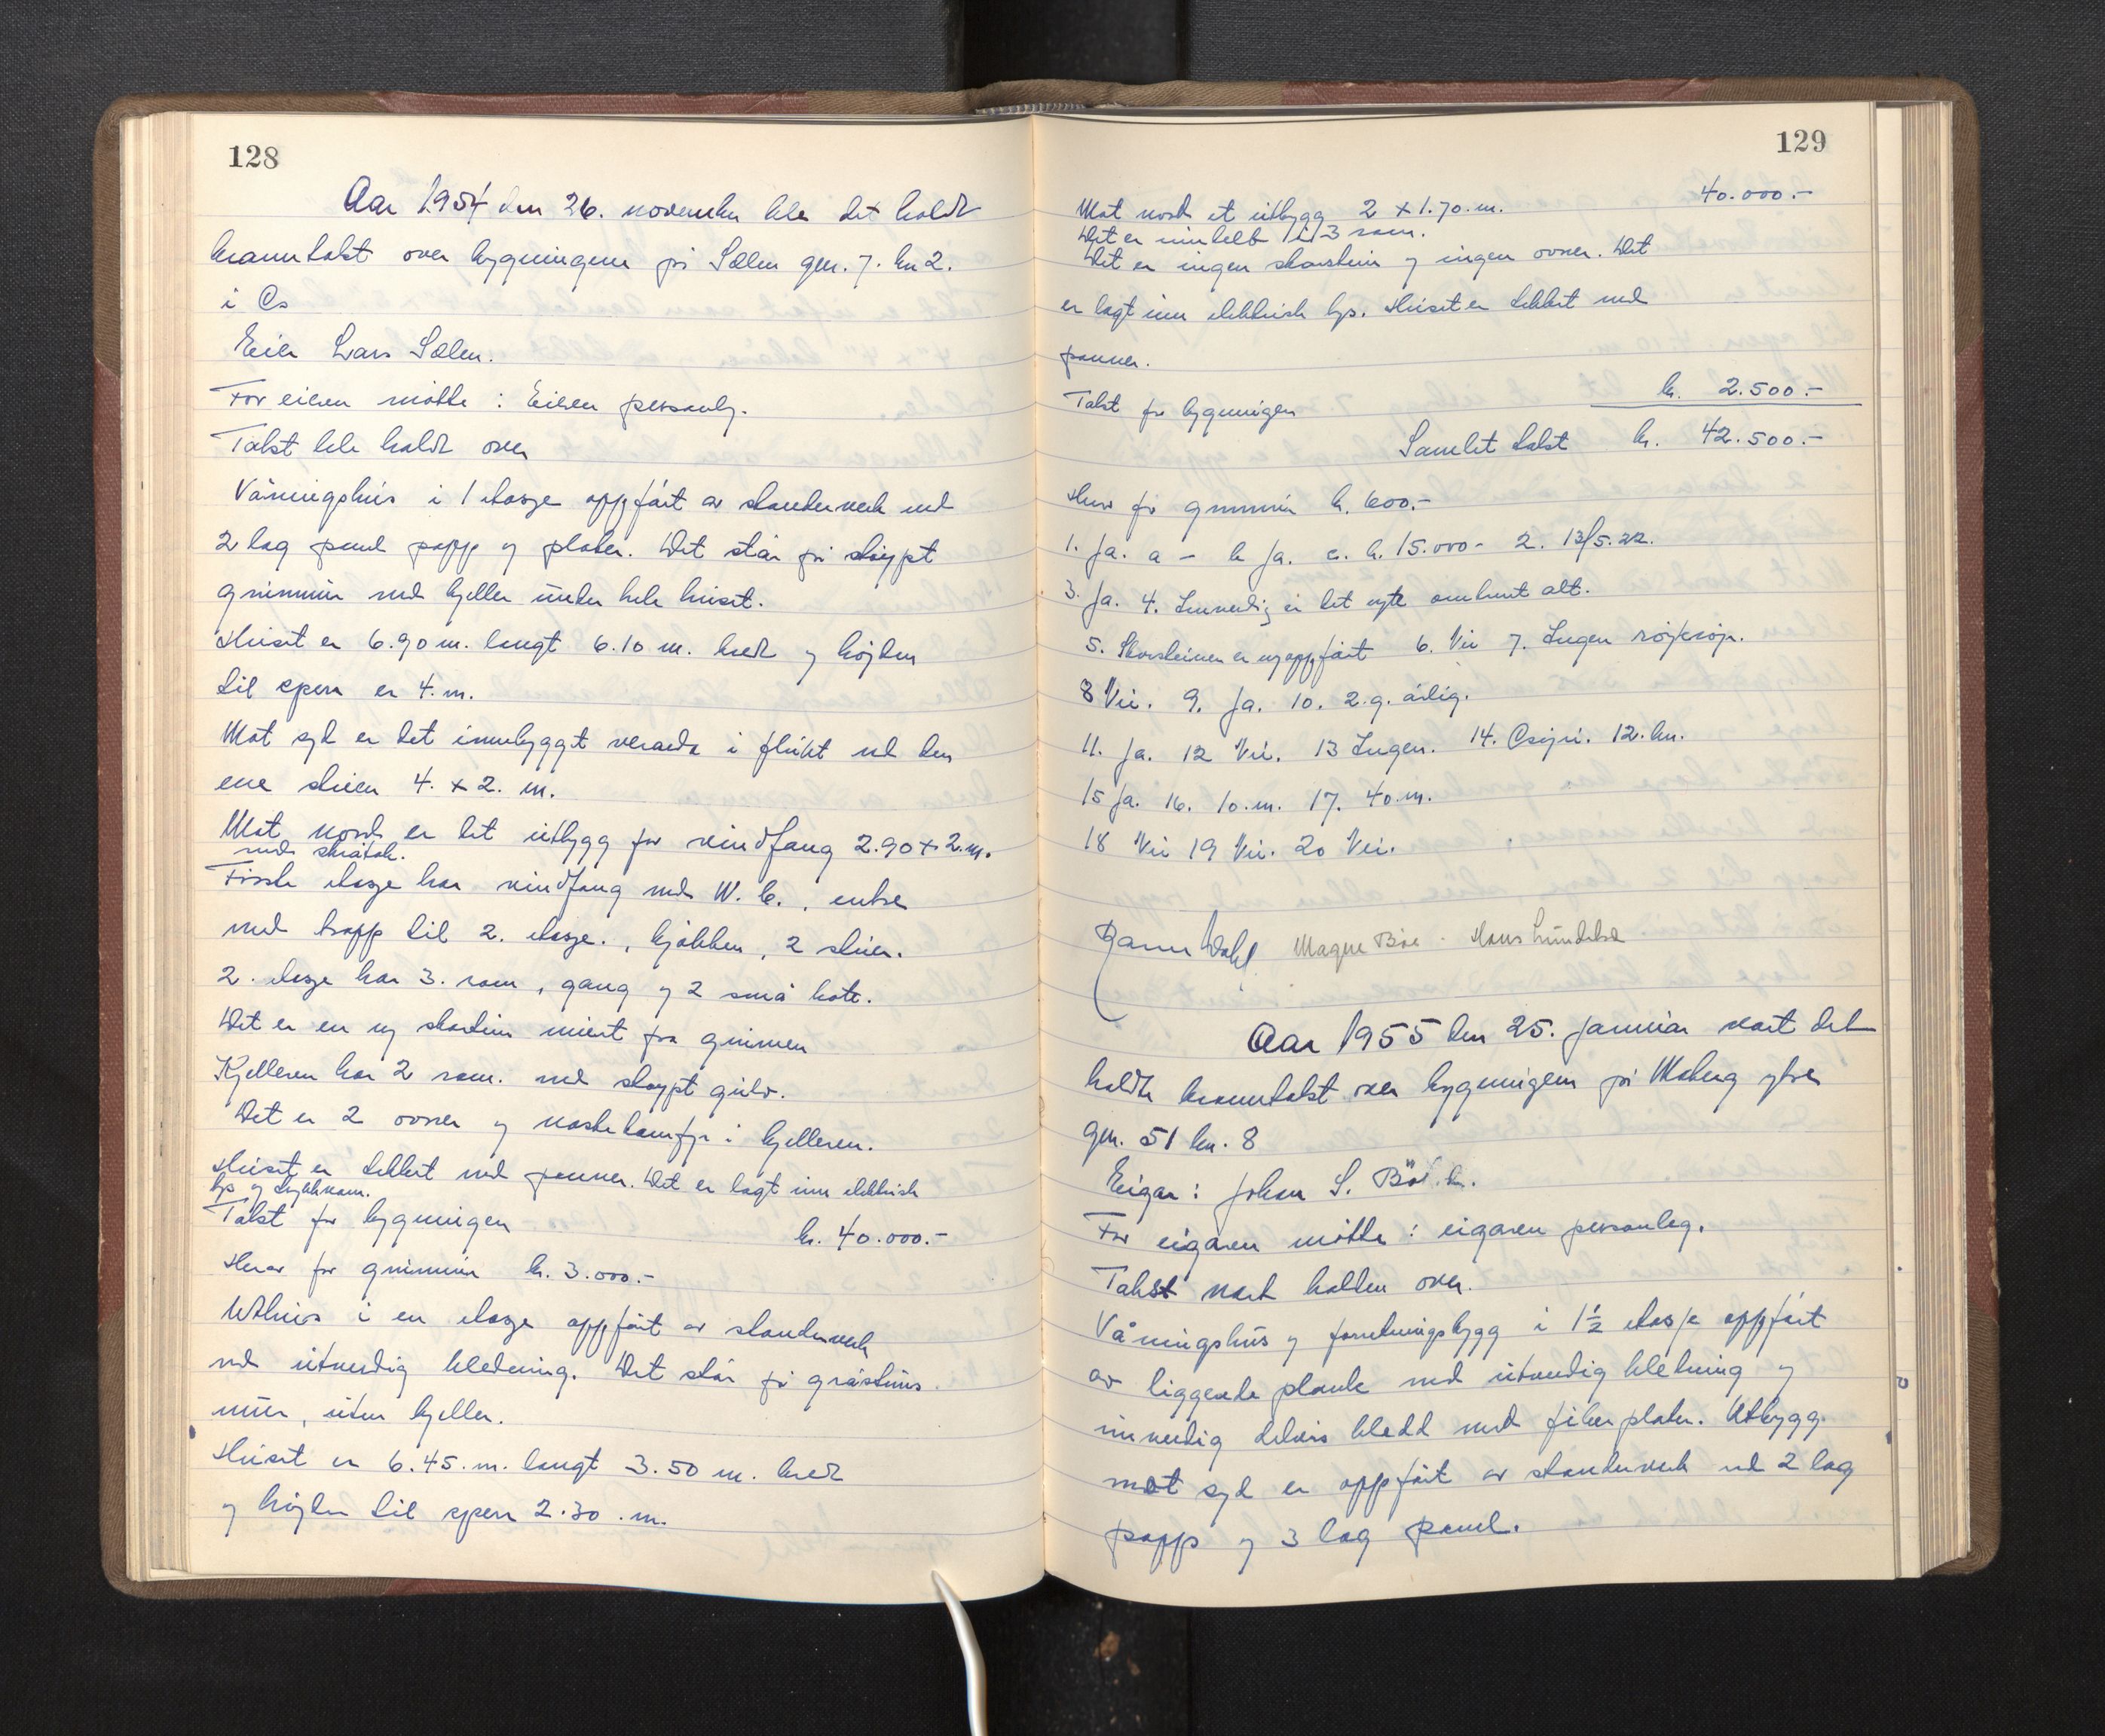 128
Aar 1954 den 26. november ble det holdt
branntakst over bygningene på Sælen gnr. 7. bn 2.
i Os
Eier Lars Sælen.
For eieren møtte : Eieren personlig.
Takst ble holdt over
Våningshus i 1 etasje oppført av stenderverk med
2 lag panel papp og plater. Det står på støypt
grunnmur med kjeller under hele huset.
Huset er 6.90 m. langt 6.10 m. bredt og høyden
til sperr er 4. m.
Mot syd er det innebyggt veranda i flukt med den
ene stuen 4. x 2. m.
Mot nord er det utbygg for vindfang 2.90 x 2. m.
med skråtak.
Første etasje har vindfang med W. C., entre
med trapp til 2. etasje., kjøkken, 2 stuer.
2. etasje har 3. rom, gang og 2 små kott.
Det er en ny skorstein muret fra grunnen
Kjelleren har 2 rom. med støypt gulv.
Det er 2 ovner og vaskekomfyr i kjelleren.
Huset er tekket med panner. Det er lagt inn elektrisk
lys og trykkvann.
Takst for bygningen kr. 40.000.-
Herav for grunnmur kr. 3.000.-
Uthus i en etasje oppført av stenderverk
med utvendig kledning. Det står på gråsteins
mur, uten kjeller.
Huset er 6.45. m. langt 3.50 m. bredt
og høyden til sperr 2.30. m.
129
40.000.-
Mot nord et utbygg 2 x 1.70. m.
Det er inndelt i 3 rom.
Det er ingen skorstein og ingen ovner. Det
er lagt inn elektrisk lys. Huset er tekket med
panner.
Takst for bygningen kr. 2.500.-
Samlet takst kr. 42.500.-
Herav for grunnmur kr. 600.-
1. Ja. a - b Ja. c. kr. 15.000- 2. 13/5.22.
3. Ja. 4. Innvendig er det nytt omtrent alt.
5. Skorsteinen er nyoppført 6. Nei 7. Ingen røykrør.
8 Nei. 9. Ja. 10. 2. g. årlig.
11. Ja. 12 Nei. 13 Ingen. 14. Osøyri. 12. km.
15 Ja. 16. 10. m. 17. 40. m.
18 Nei 19 Nei. 20 Nei.
Dahl Magne Bøe. Hans
Aar 1955 den 25. januar vart det
holdt branntakst over bygningen på Moberg ytre
gnr. 51 bn. 8
Eigar : Johan S.
For eigaren møtte : eigaren personleg.
Takst vart holden over.
Våningshus og forretningsbygg i 1½ etasje oppført
av liggende plank med utvendig kledning og
innvendig delvis kledd med fiberplater. Utbygg
mot syd er oppført av stenderverk med 2 lag
papp og 3 lag panel.